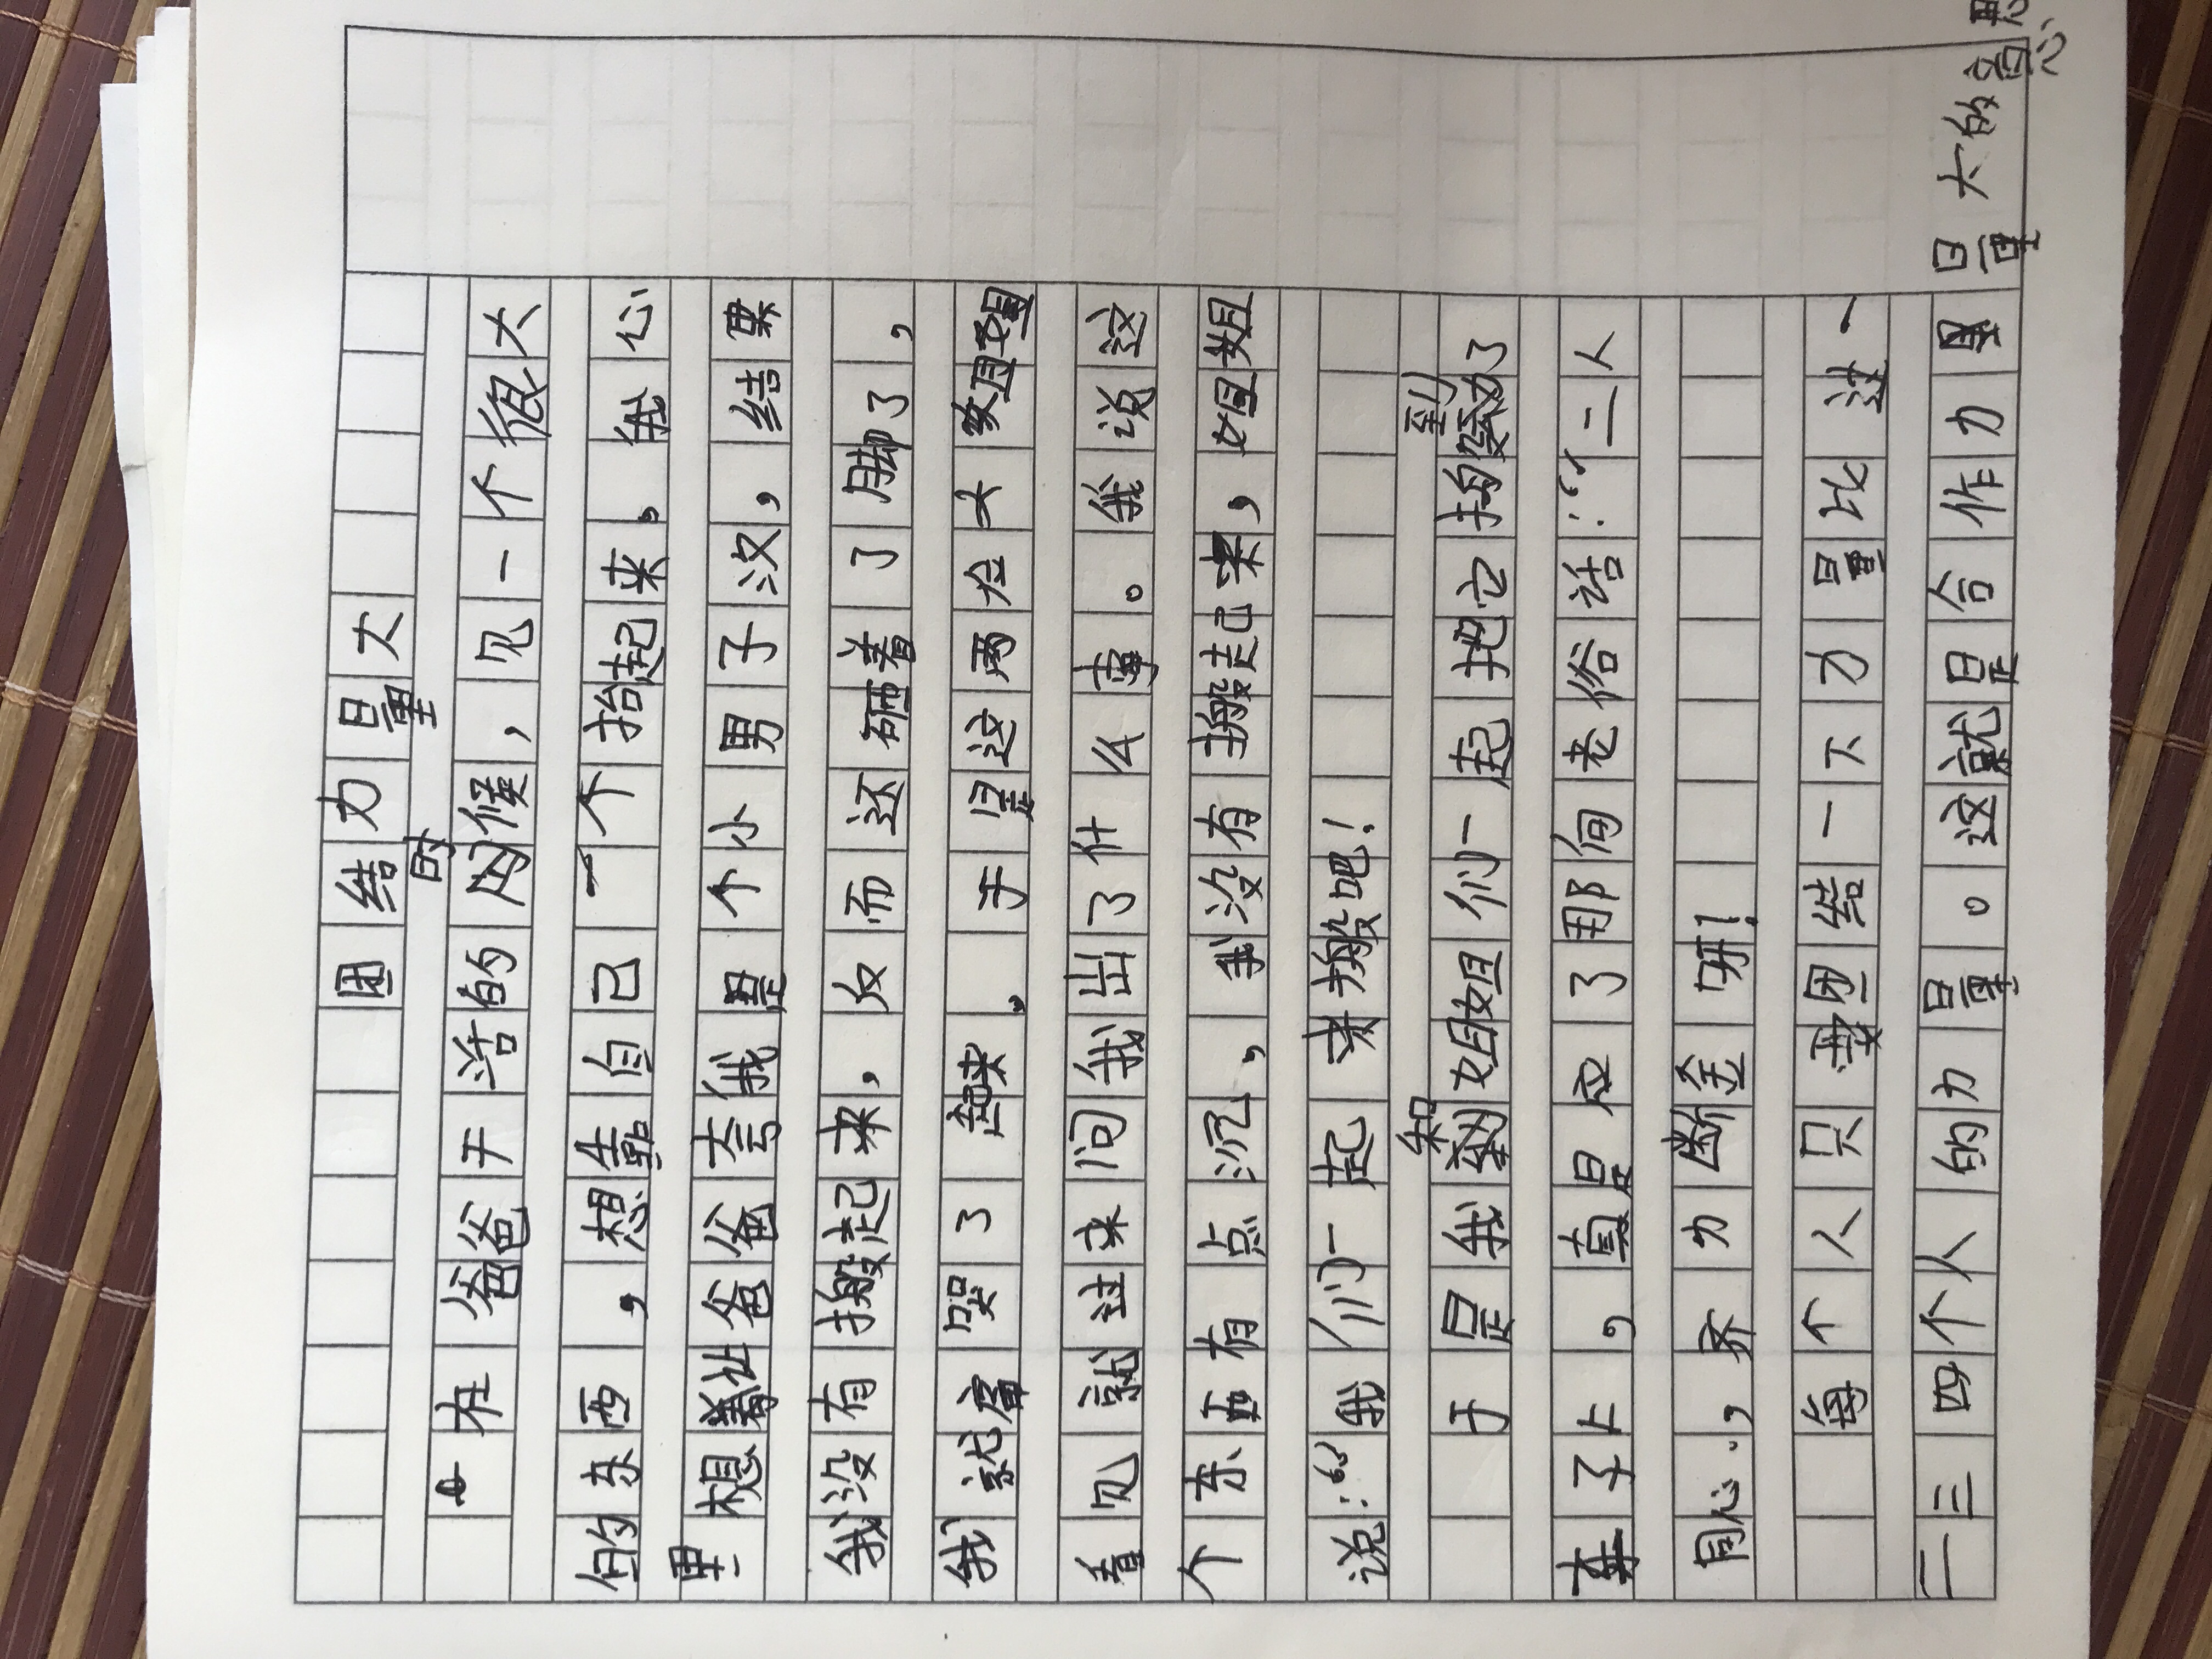 团结力量大
在爸爸干活的时候，见一个很大
的东西，想靠自己一个抬起来，我心
里想着让爸爸夸我是个小男子汉，结果
我没有搬起来，反而还砸着了脚了，
我就痛哭了起来。于是这两位大姐姐
看见就过来问我出了什么事。我说这
个东西有点沉，我没有搬起来，姐姐
说：“我们一起来搬吧！
于是我和姐姐们一起把它搬到了
车子上，真是应了那句老俗话：“二人
同心，齐力断金呀！
每个人只要团结一下力量比过一
二三四个人的力量。这就是合作力量大的意思